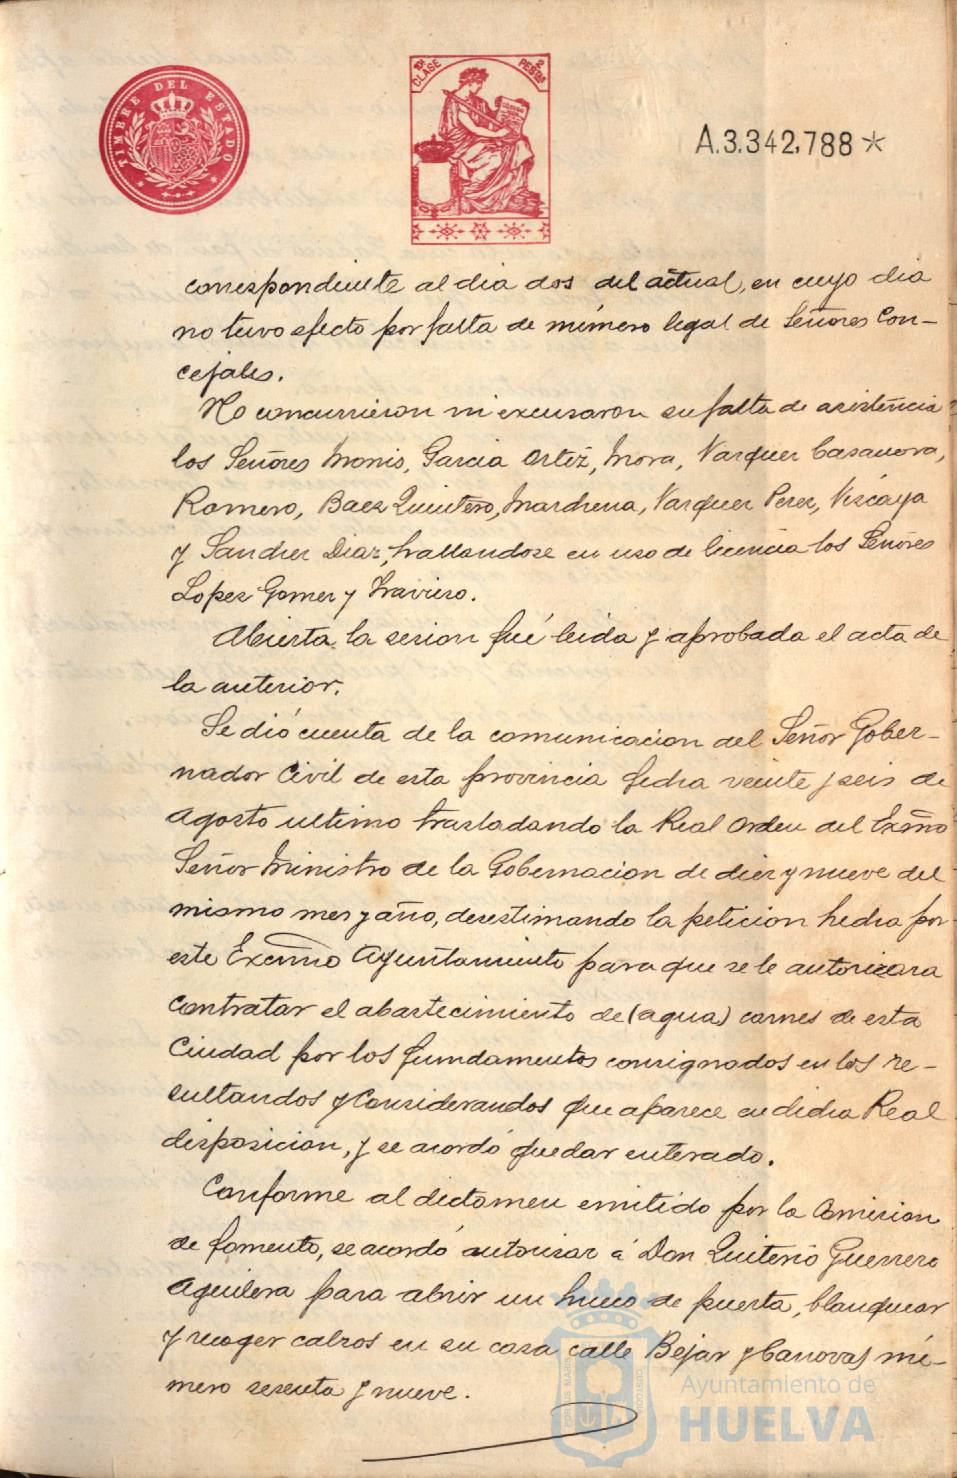 TIMBRE DEL ESTADO
10ª CLASE 2 PESETAS
A.3.342,788*
correspondiente al dia dos del actual, en cuyo dia
no tuvo efecto por falta de número legal de Señores Con-
cejales.
No concurrieron ni excusaron su falta de asistencia
los Señores Monis, Garcia Ortiz, Mora, Vazquez Casanova,
Romero, Baez Quintero, Marchena, Vazquez Perez, Vizcaya
y Sanchez Diaz, hallandose en uso de licencia los Señores
Lopez Gomez y Travieso.
Abierta la sesion fué leida y aprobada el acta de
la anterior.
Se dió cuenta de la comunicacion del Señor Gober-
nador Civil de esta provincia fecha veinte y seis de
Agosto ultimo trasladando la Real Orden del Exmo
Señor Ministro de la Gobernacion de diez y nueve del
mismo mes y año, desestimando la peticion hecha por
este Excmo Ayuntamiento para que se le autorizara
contratar el abastecimiento de (agua) carnes de esta
Ciudad por los fundamentos consignados en los re-
sultandos y Considerandos que aparece en dicha Real
disposicion, y se acordó quedar enterado.
Conforme al dictamen emitido por la Comision
de fomento, se acordó autorizar á Don Quiterio Guerrero
Aguilera para abrir un hueco de puerta, blanquear
y recoger calzos en su casa calle Bejar y Canovas nú-
mero sesenta y nueve.
PORTUS MARIS CUSTODIA
Ayuntamiento de
HUELVA